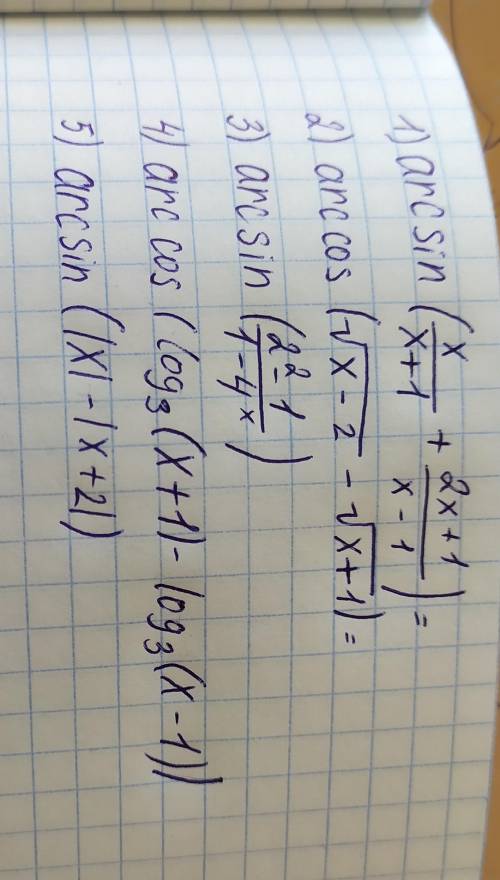 1) arcsin (x/(x+1) + (2x+1)/(x-1)) =
2) arccos (√(x-2) - √(x+1)) =
3) arcsin ((2² - 1)/(1-4ˣ))
4) arccos (log₃(x+1) - log₃(x-1))
5) arcsin (|x| - |x+2|)